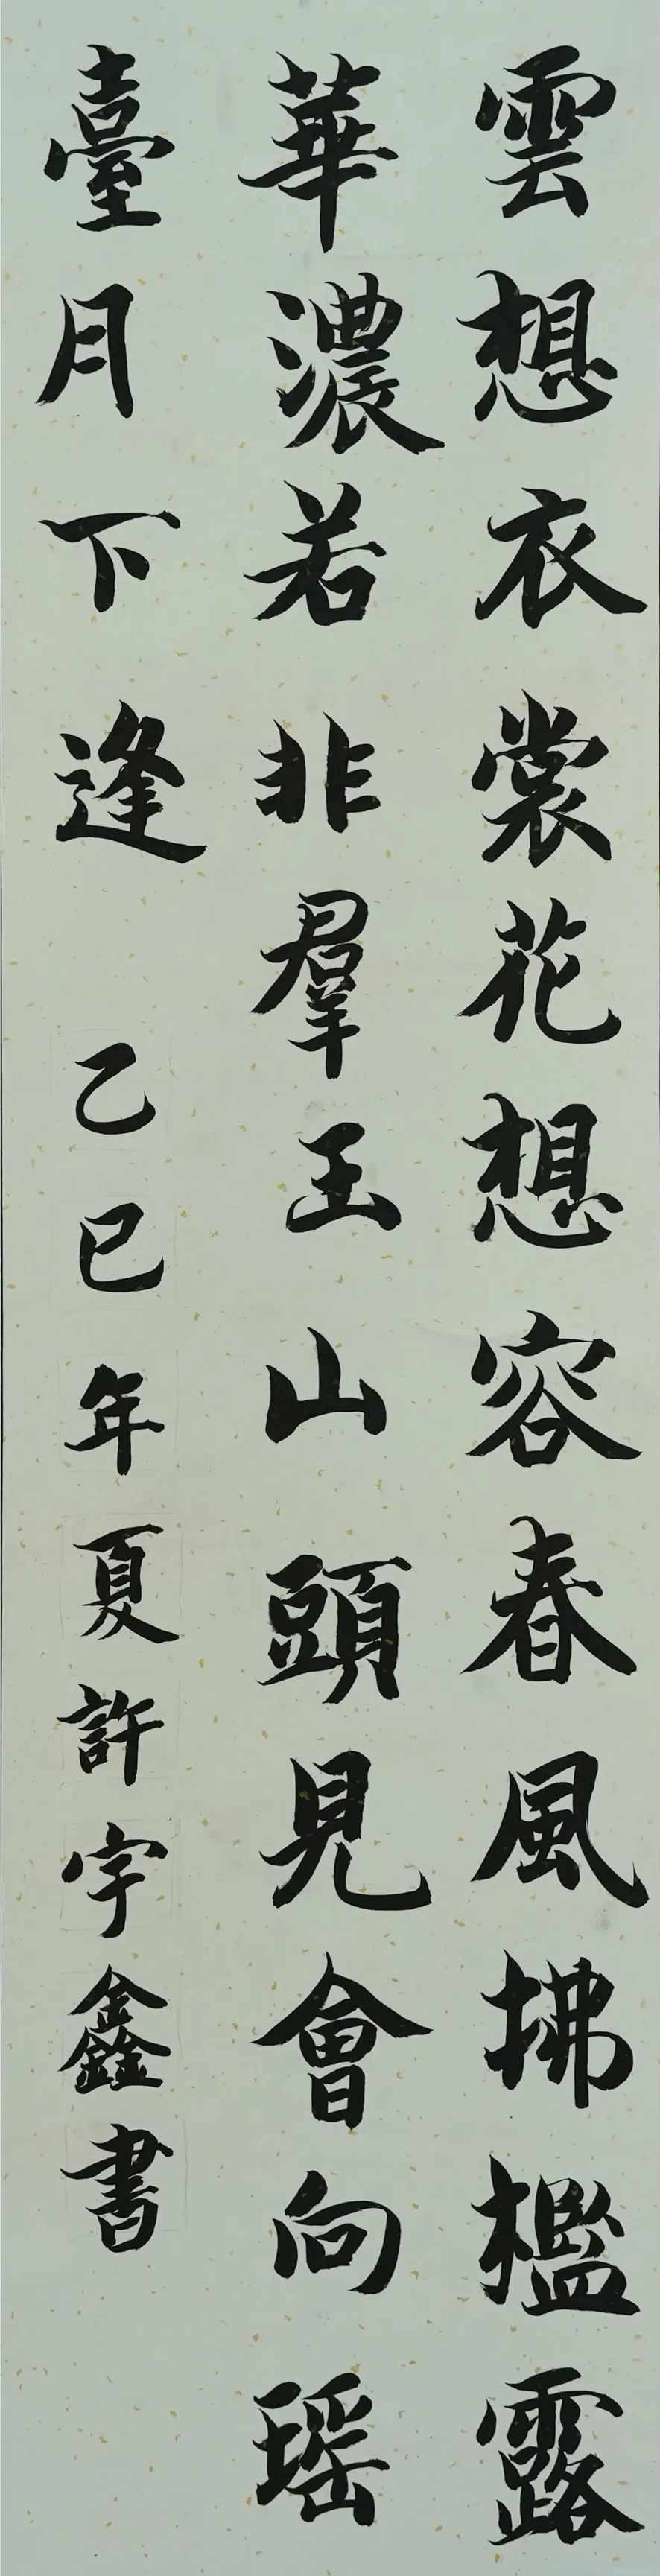 雲想衣裳花想容春風拂檻露
華濃若非羣玉山頭見會向瑶
臺月下逢 乙巳年夏許宇鑫書